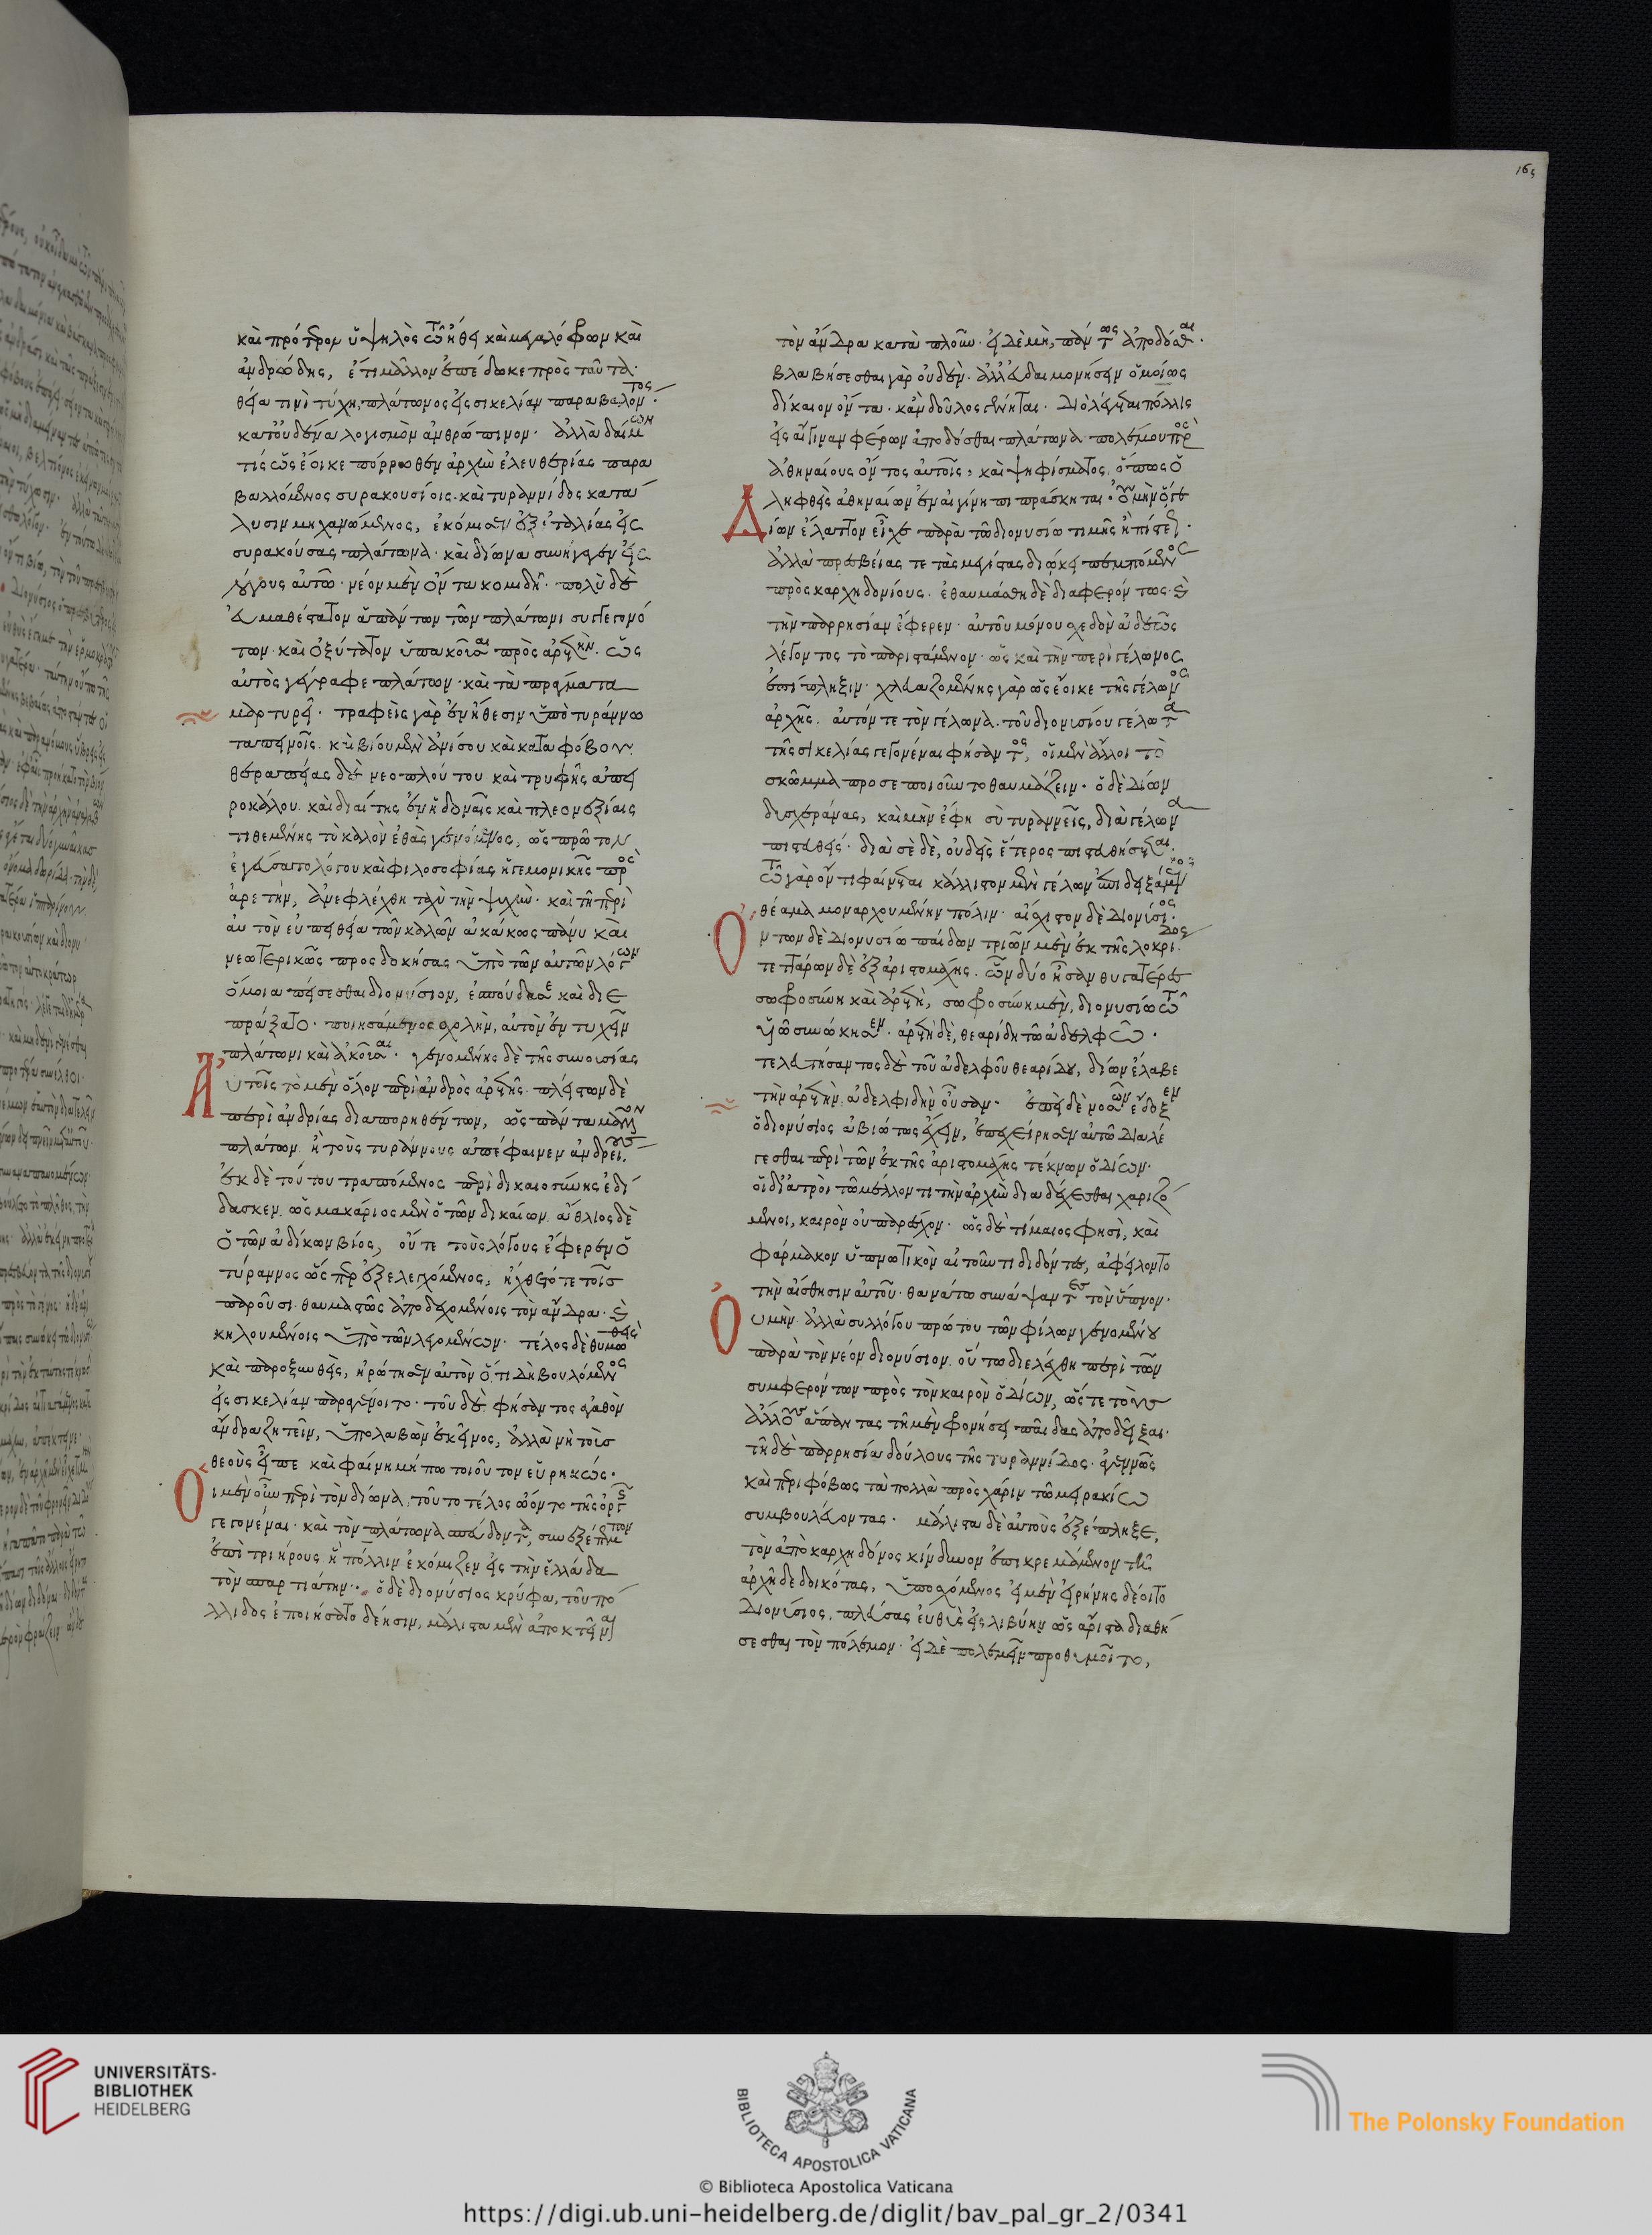 καὶ πρότερον ὑψηλὸς τῶ ἤθει καὶ μεγαλόφρων καὶ
ἀνδρώδης, ἔτι μᾶλλον ἐπέδωκε πρὸς ταῦτα·
θεία τινὶ τύχη, πλάτωνος εἰς σικελίαν παραβαλόντος·
κατ' οὐδένα λογισμὸν ἀνθρώπινον· ἀλλὰ δαίμων
τίς ὡς ἔοικε πόρρωθεν ἀρχὴν ἐλευθερίας παρα
βαλλόμενος συρακουσίοις. καὶ τυραννίδος κατά
λυσιν μηχανώμενος, ἐκόμισεν ἐξ ἰταλίας εἰς
συρακούσας πλάτωνα· καὶ δίωνα συνήγαγεν εἰς
λόγους αὐτῶ· νέον μὲν ὄντα κομιδῆ· πολὺ δὲ
εὐμαθέστατον ἁπάντων τῶν πλάτωνι συγγεγονό
των· καὶ ὀξύτατον ὑπακοῦσαι πρὸς ἀρετήν. ὡς
αὐτὸς γέγραφε πλάτων· καὶ τὰ πράγματα
μαρτυρεῖ· τραφεὶς γὰρ ἐν ἤθεσιν ὑπὸ τυράννω
ταπεινοῖς. καὶ βίου μὲν ἀνίσου καὶ καταφόβου.
θεραπείας δὲ νεοπλούτου καὶ τρυφῆς ἀπει
ροκάλου καὶ διαίτης ἐν ἡδοναῖς καὶ πλεονεξίαις
τιθεμένης τὸ καλὸν ἐθὰς γενόμενος, ὡς πρῶτον
ἐγεύσατο λόγου καὶ φιλοσοφίας ἡγεμονικῆς πρὸς
ἀρετὴν, ἀνεφλέχθη ταχὺ τὴν ψυχὴν· καὶ τῆ περὶ
αὐτὸν εὐπειθεία τῶν καλῶν ἀκάκως πάνυ καὶ
νεωτερικῶς προσδοκήσας ὑπὸ τῶν αὐτῶν λόγων
ὅμοια πείσεσθαι διονύσιον, ἐσπούδασε καὶ διε
πράξατο· ποιησάμενος σχολὴν, αὐτὸν ἐντυχεῖν
πλάτωνι καὶ ἀκοῦσαι· γενομένης δὲ τῆς συνουσίας
Αὐτοῖς τὸ μὲν ὅλον περὶ ἀνδρὸς ἀρετῆς· πλείστων δὲ
περὶ ἀνδρίας διαπορηθέντων, ὡς πάντα μᾶλλον
πλάτων ἢ τοὺς τυράννους ἀπέφαινεν ἀνδρείους.
ἐκ δὲ τούτου τραπόμενος περὶ δικαιοσύνης ἐδί
δασκεν. ὡς μακάριος μὲν ὁ τῶν δικαίων. ἄθλιος δὲ
ὁ τῶν ἀδίκων βίος, οὔτε τοὺς λόγους ἔφερεν ὁ
τύραννος ὥσπερ ἐξελεγχόμενος, ἤχθετό τε τοῖς
παροῦσι· θαυμαστῶς ἀποδεχομένοις τὸν ἄνδρα· καὶ
κηλουμένοις ὑπὸ τῶν λεγομένων· τέλος δὲ θυμωθεὶς
καὶ παροξυνθεὶς, ἠρώτησεν αὐτὸν ὅ,τι δὴ βουλόμενος
εἰς σικελίαν παραγένοιτο· τοῦ δὲ φήσαντος ἀγαθὸν
ἄνδρα ζητεῖν, ὑπολαβὼν ἐκεῖνος, ἀλλὰ νὴ τοὺς
θεοὺς εἶπε καὶ φαίνη μήπω τοιοῦτον εὑρηκώς·
Οἱ μὲν οὖν περὶ τὸν δίωνα, τοῦτο τέλος ὤοντο τῆς ὀργῆς
γεγονέναι· καὶ τὸν πλάτωνα σπεύδοντα, συνεξέπεμπον
ἐπὶ τριήρους ἣ πόλλιν ἐκόμιζεν εἰς τὴν ἑλλάδα
τὸν σπαρτιάτην· ὁ δὲ διονύσιος κρύφα, τοῦ πό
λλιδος ἐποιήσατο δέησιν, μάλιστα μὲν ἀποκτεῖναι
τὸν ἄνδρα κατὰ πλοῦν· εἰ δὲ μὴ, πάντως ἀποδόσθαι·
βλαβήσεσθαι γὰρ οὐδὲν· ἀλλ' εὐδαιμονήσειν ὁμοίως
δίκαιον ὄντα· κἂν δοῦλος γένηται· Διὸ λέγεται πόλλις
εἰς αἴγιναν φέρων ἀποδόσθαι πλάτωνα· πολέμου πρὸς
ἀθηναίους ὄντος αὐτοῖς· καὶ ψηφίσματος, ὅπως ὁ
ληφθεὶς ἀθηναίων ἐν αἰγίνη πιπράσκηται· οὐ μὴν ὅγε
Δίων ἔλαττον εἶχε παρὰ τῶ διονυσίω τιμῆς ἢ πίστεως·
ἀλλὰ πρεσβείας τε τὰς μεγίστας διώκει πεμπόμενος
πρὸς καρχηδονίους· ἐθαυμάσθη δὲ διαφερόντως· καὶ
τὴν παρρησίαν ἔφερεν· αὐτοῦ μόνου σχεδὸν ἀδεῶς
λέγοντος τὸ παριστάμενον· ὡς καὶ τὴν περὶ γέλωνος
ἐπίπληξιν· χλευαζομένης γὰρ ὡς ἔοικε τῆς γέλωνος
ἀρχῆς. αὐτόν τε τὸν γέλωνα. τοῦ διονυσίου γέλωτα
τῆς σικελίας γεγονέναι φήσαντος, οἱ μὲν ἄλλοι τὸ
σκῶμμα προσεποιοῦντο θαυμάζειν· ὁ δὲ Δίων
δυσχεράνας, καὶ μὴν ἔφη σὺ τυραννεῖς, διὰ γέλωνα
πιστευθείς· διὰ σὲ δὲ, οὐδεὶς ἕτερος πιστευθήσεται·
τῶ γὰρ ὄντι φαίνεται κάλλιστον μὲν γέλων ἐπιδειξάμενος
θέαμα μοναρχουμένην πόλιν· αἴσχιστον δὲ Διονύσιος·
Ὄντων δὲ Διονυσίω παίδων τριῶν μὲν ἐκ τῆς λοκρίδος
τεττάρων δὲ ἐξ ἀριστομάχης. ὧν δύο ἦσαν θυγατέρες
σωφροσύνη καὶ ἀρετὴ, σωφροσύνη μὲν, διονυσίω τῶ
υἱῶ συνώκησεν· ἀρετὴ δὲ, θεαρίδη τῶ ἀδελφῶ·
τελευτήσαντος δὲ τοῦ ἀδελφοῦ θεαρίδου, δίων ἔλαβε
τὴν ἀρετὴν, ἀδελφιδῆν οὖσαν· ἐπεὶ δὲ νοσῶν ἔδοξεν
ὁ διονύσιος ἀβιώτως ἔχειν, ἐπεχείρησεν αὐτῶ διαλέ
γεσθαι περὶ τῶν ἐκ τῆς ἀριστομάχης τέκνων ὁ Δίων·
οἱ δ' ἰατροὶ τῶ μέλλοντι τὴν ἀρχὴν διαδέχεσθαι χαριζό
μενοι, καιρὸν οὐ παρέσχον· ὡς δὲ τίμαιος φησὶ, καὶ
φάρμακον ὑπνωτικὸν αἰτοῦντι διδόντες, ἀφείλοντο
τὴν αἴσθησιν αὐτοῦ· θανάτω συνάψαντες τὸν ὕπνον·
Οὐ μὴν ἀλλὰ συλλόγου πρώτου τῶν φίλων γενομένου
παρὰ τὸν νέον διονύσιον. οὕτω διελέχθη περὶ τῶν
συμφερόντων πρὸς τὸν καιρὸν ὁ Δίων, ὥστε τοὺς
ἄλλους ἅπαντας τῆ μὲν φρονήσει παῖδας ἀποδεῖξαι·
τῆ δὲ παρρησία δούλους τῆς τυραννίδος· ἀγεννῶς
καὶ περιφόβως τὰ πολλὰ πρὸς χάριν τῶ μειρακίω
συμβουλεύοντας· μάλιστα δὲ αὐτοὺς ἐξέπληξε,
τὸν ἀπὸ καρχηδόνος κίνδυνον ἐπικρεμάμενον τῆ
ἀρχῆ δεδοικότας, ὑποσχόμενος εἰ μὲν εἰρήνης δέοιτο
Διονύσιος, πλεύσας εὐθὺς εἰς λιβύην ὡς ἄριστα διαθή
σεσθαι τὸν πόλεμον· εἰ δὲ πολεμεῖν προθυμοῖτο,
165
UNIVERSITÄTS-
BIBLIOTHEK
HEIDELBERG
BIBLIOTECA APOSTOLICA VATICANA
The Polonsky Foundation
© Biblioteca Apostolica Vaticana
https://digi.ub.uni-heidelberg.de/diglit/bav_pal_gr_2/0341